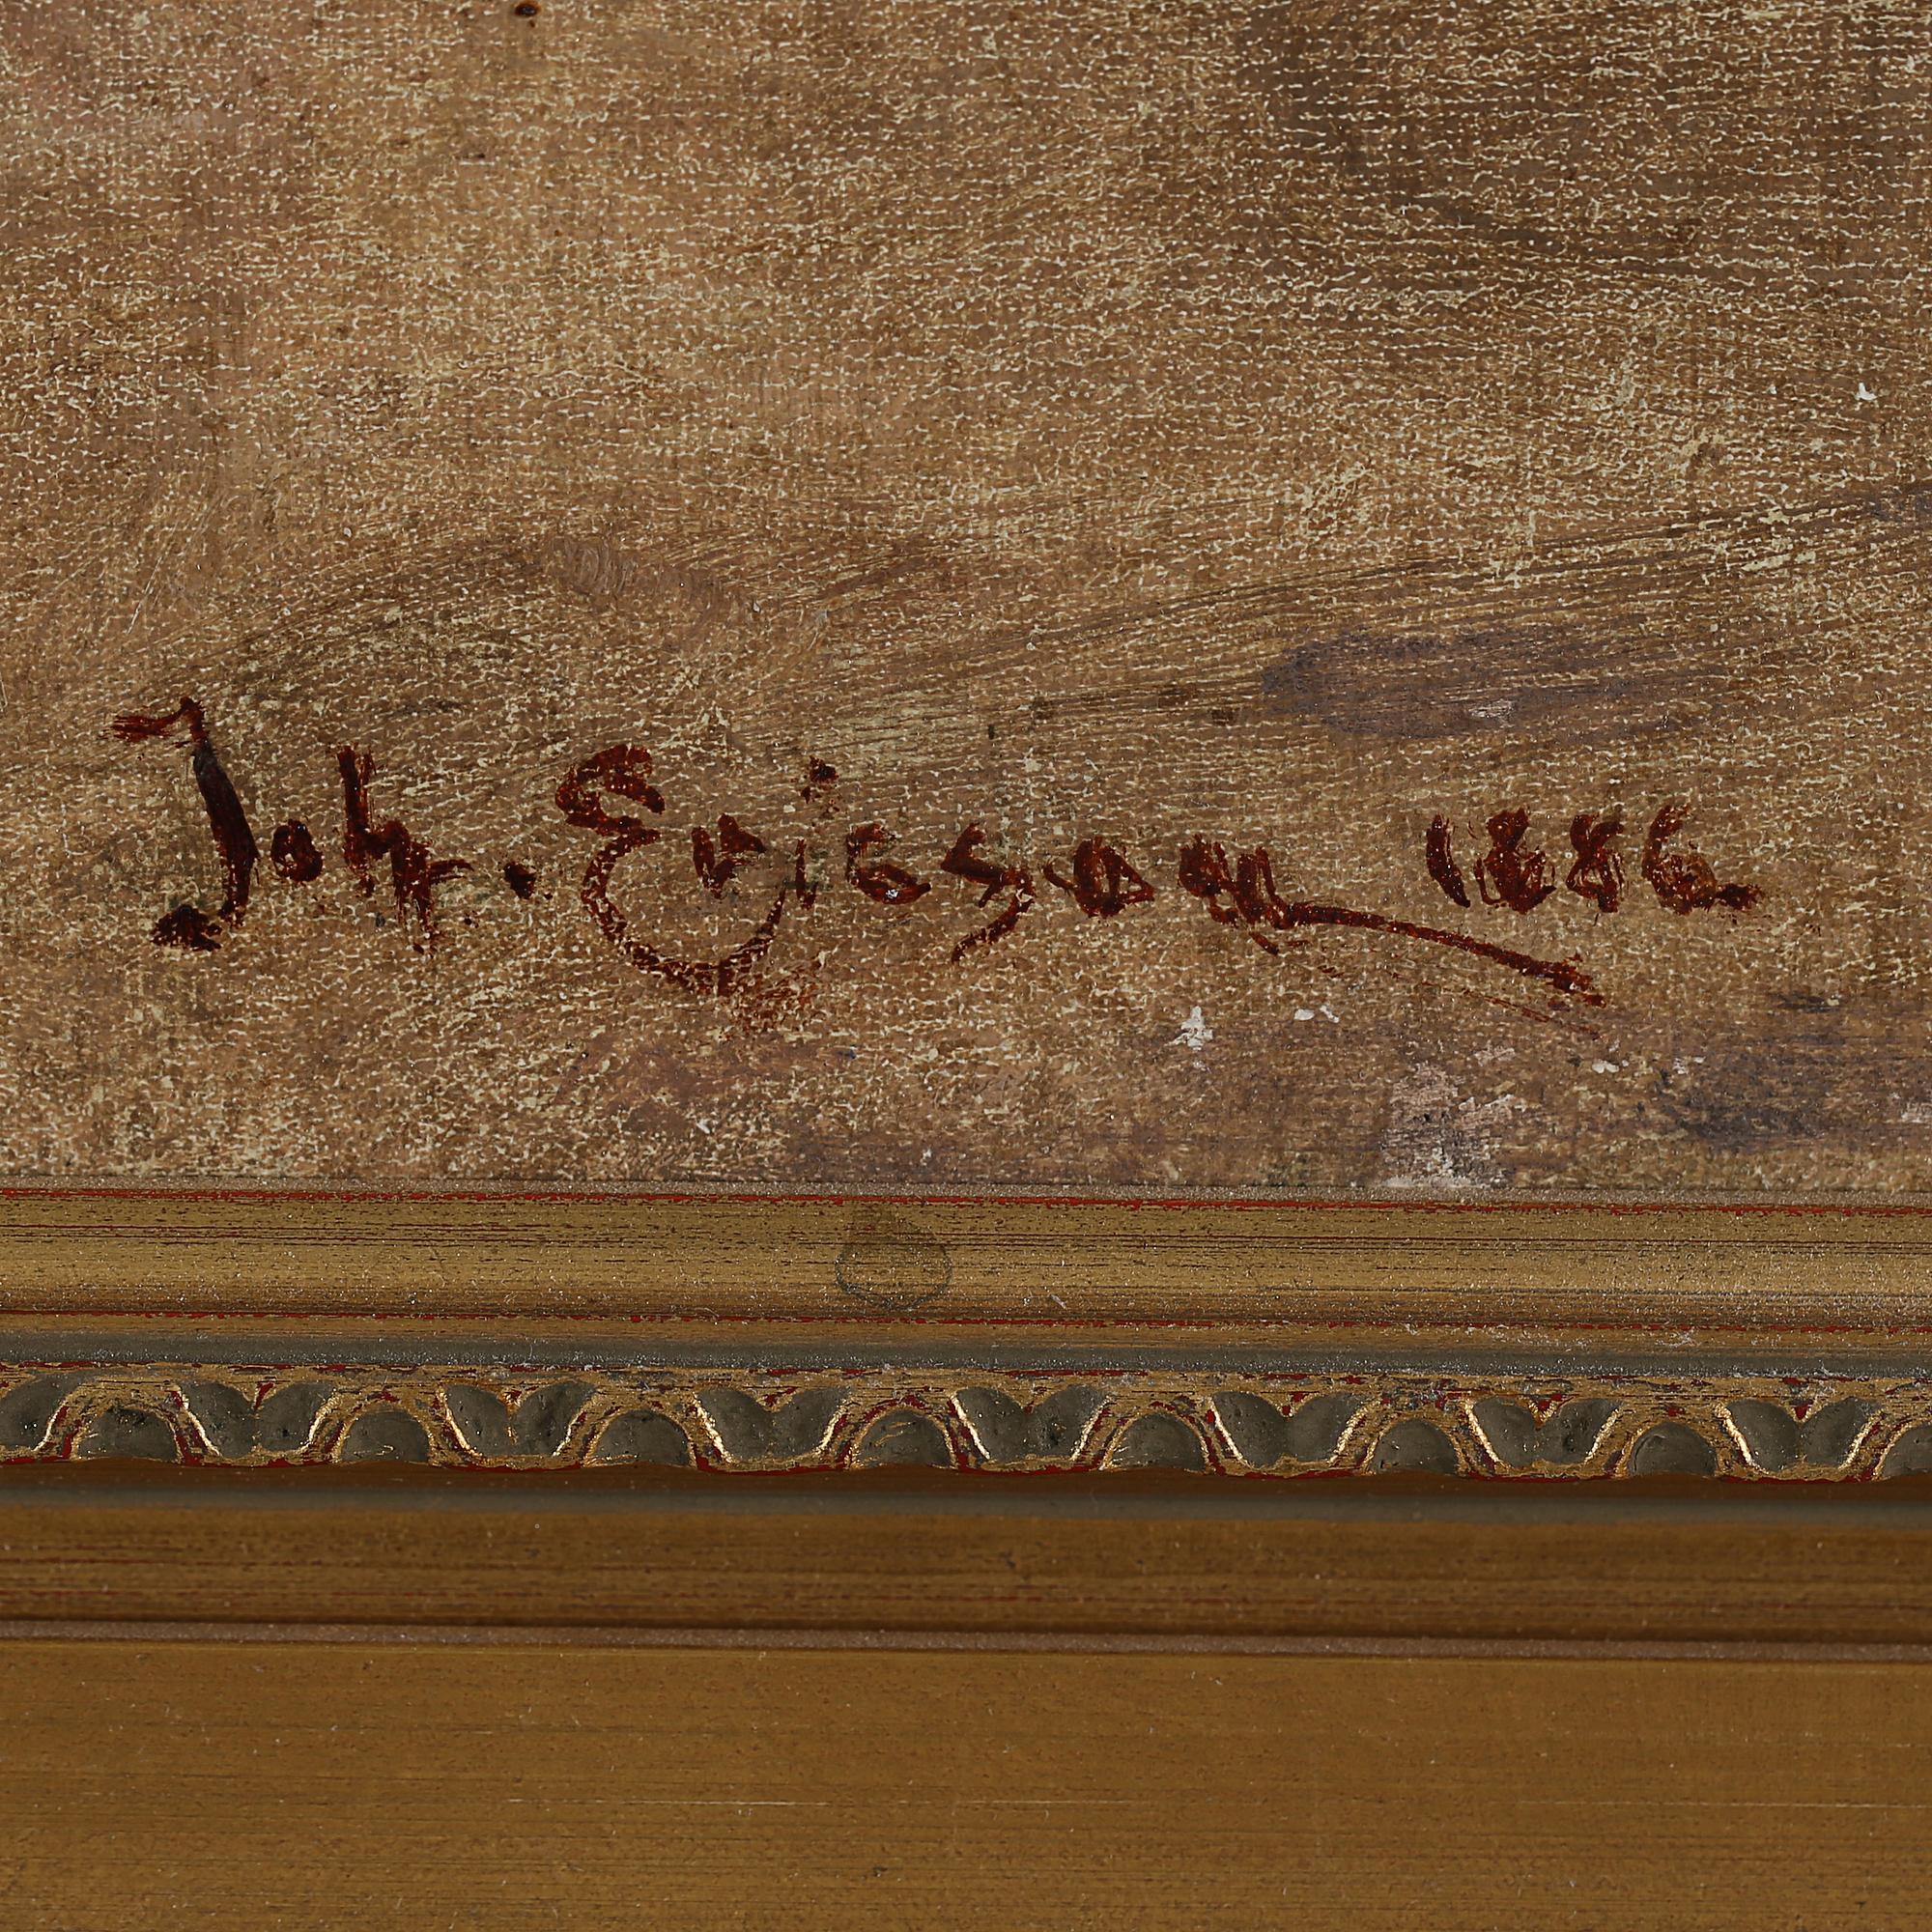 Joh. Ericson 1886